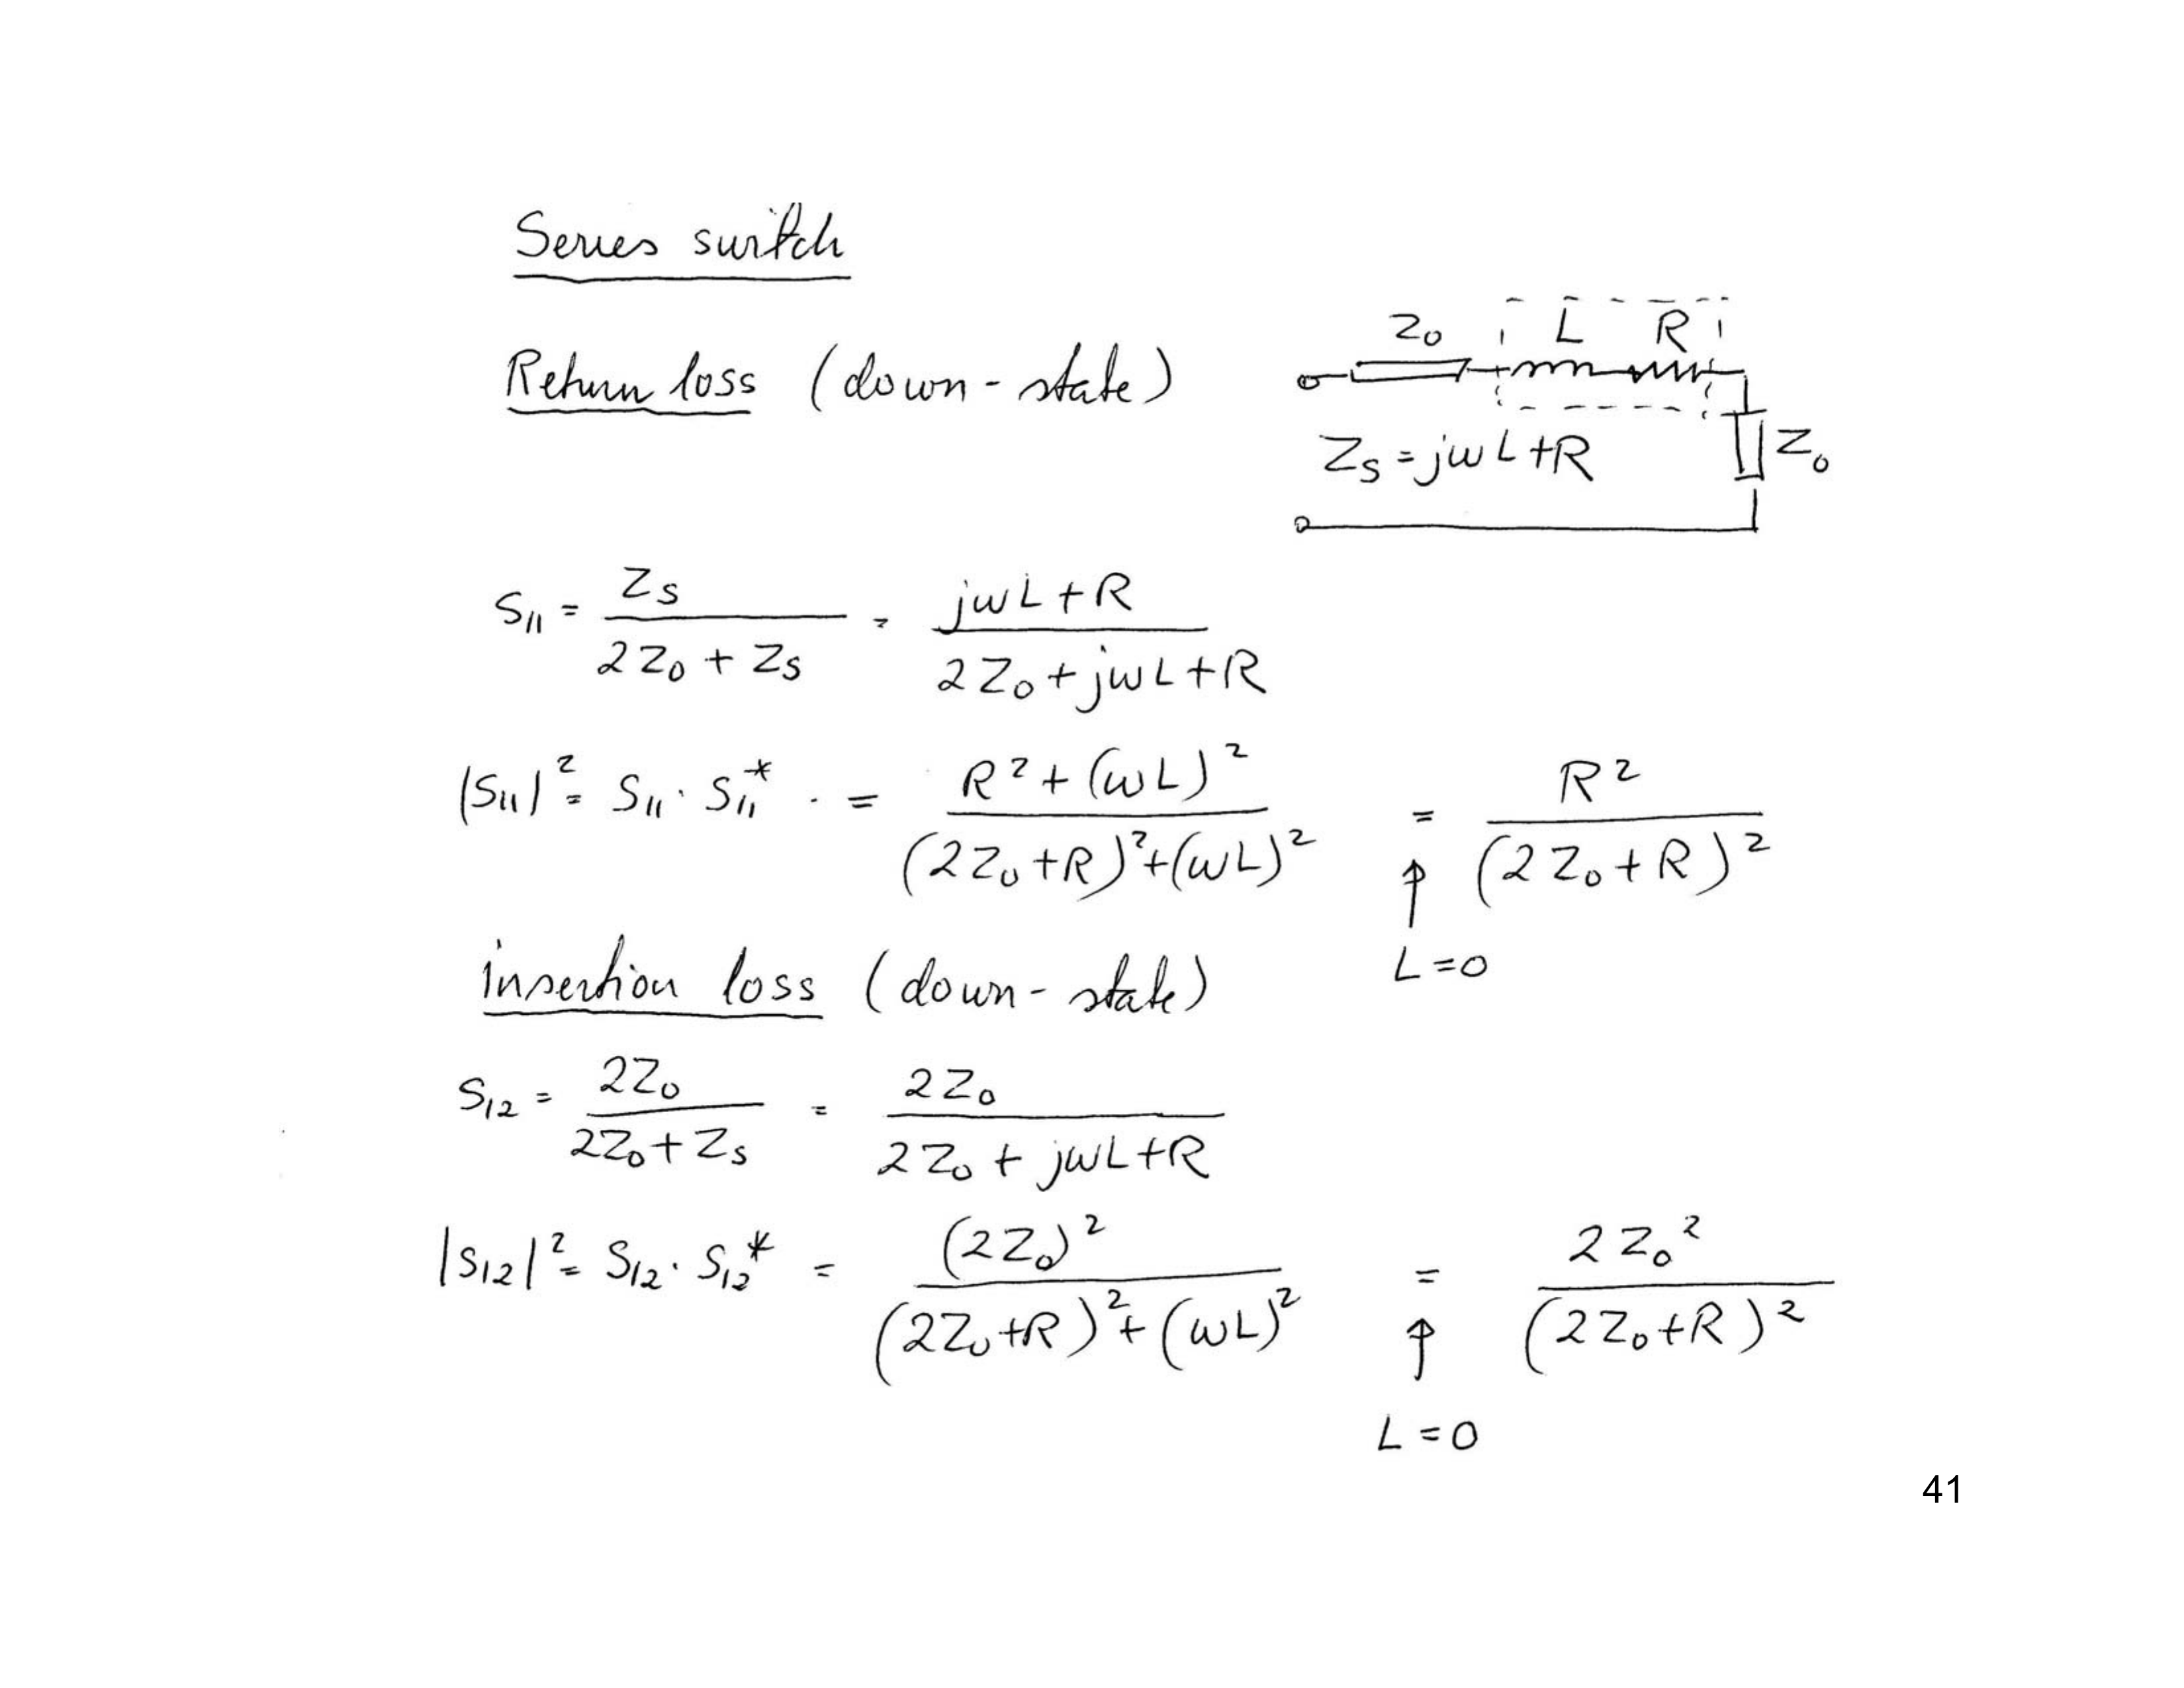 Series switch
Return loss (down-state)
Z₀ L R
Zs = jωL+R Z₀
S₁₁ = Zs / (2Z₀ + Zs) = (jωL+R) / (2Z₀+jωL+R)
|S₁₁|² = S₁₁ · S₁₁* · = (R²+(ωL)²) / ((2Z₀+R)²+(ωL)²) = R² / (2Z₀+R)²
↑
L=0
insertion loss (down-state)
S₁₂ = 2Z₀ / (2Z₀+Zs) = 2Z₀ / (2Z₀ + jωL+R)
|S₁₂|² = S₁₂ · S₁₂* = (2Z₀)² / ((2Z₀+R)²+(ωL)²) = 2Z₀² / (2Z₀+R)²
↑
L=0
41